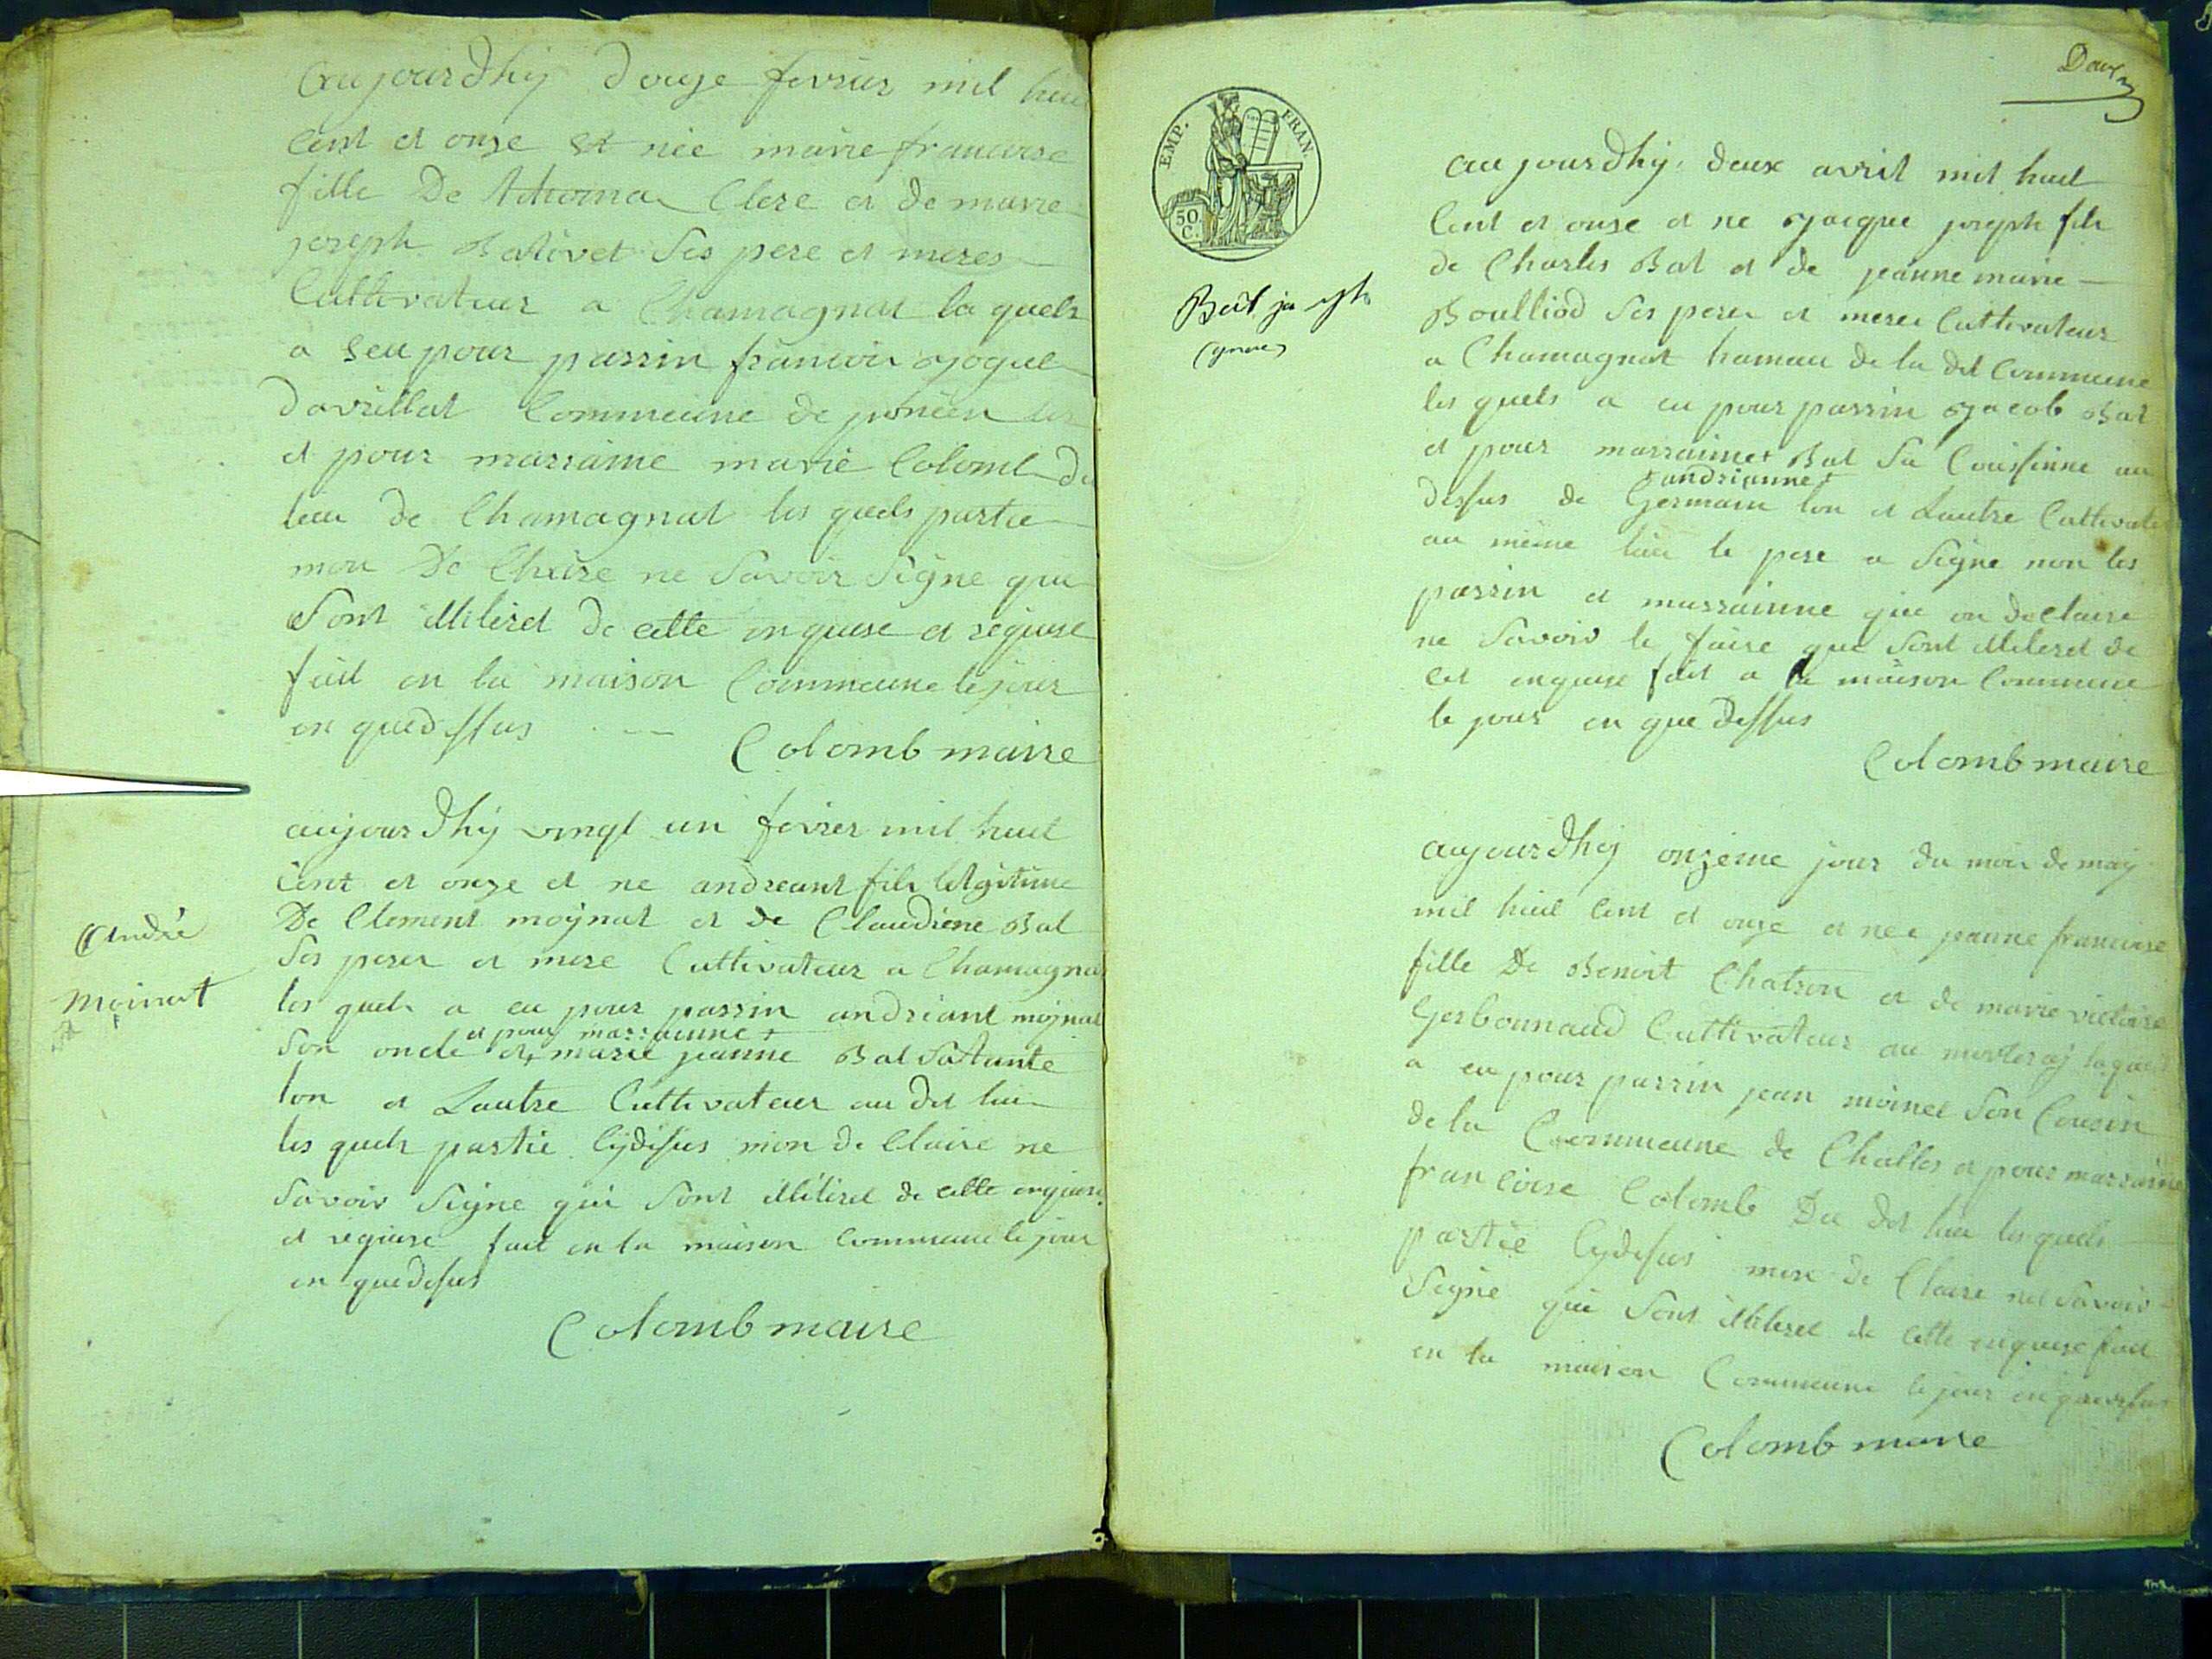 aujourdhÿ douze fevrier mil huit
cent et onze et née marie francoise
fille De Clerc et de marie
joseph Balivet ses pere et meres
Cultivateur a Chamagnat la quels
a Seu pour parrin francoir
davrillat Commeune de
et pour marraine marie Colomb du
lieu de Chamagnat les quels partie
mon De Claire ne Savoir Signe que
Sont illiteret de cette enquise et requise
fait en la maison Commeune le jour
en quedessus
Colomb maire
aujourdhÿ vingt un fevrier mil huit
cent et onze et ne andreant fils letgitime
De Clement moÿnat et de Claudiene Bal
Ses peres et mere Cultivateur a Chamagna
les quels a eu pour parrin andriant moÿnat
et pour marrainne +
Son oncle et + marie jeanne Bal Sa tante
lon et Lautre Cultivateur au dit lieu
les quels partie Cÿdessus mon de Claire ne
Savoir Signe qui Sont illiteret de cette enquise
et requise fait en la maison Commeune le jour
en quedessus
Colomb maire
André
moinat
EMP. FRAN.
50 C.
aujourdhÿ deux avril mil huit
Cent et onze et ne jacque joseph fils
de Charles Bal et de jeanne marie
Boulliod Ses peres et meres Cultivateur
a Chamagnat hameau de la dit Commeune
les quels a eu pour parrin jacob Bal
et pour marraine + Bal Sa Coussinne au
+ andrianne +
dessus de Germain lon et Lautre Cultivateur
au même lieu le pere a Signe non les
parrin et marrainne que on declaire
ne Savoir le faire que Sont illiteret de
cet enquise fait a la maison Commeune
le jour en que dessus
Colomb maire
aujourdhÿ onzeme jour du moir de maÿ
mil huit Cent et onze et née jeanne francoise
fille De Benoit Chatron et de marie victoire
Gerbonnaud Cultivateur au laquels
a eu pour parrin jean moinet Son Cousin
de la Commeune de Challes et pour marraine
francoise Colomb Du dit lieu les quels
partie Cÿdessus mon de Claire net Savoir
Signe que Sont illiteret de cette enquise fait
en la maison Commeune le jour en quedessus
Colomb maire